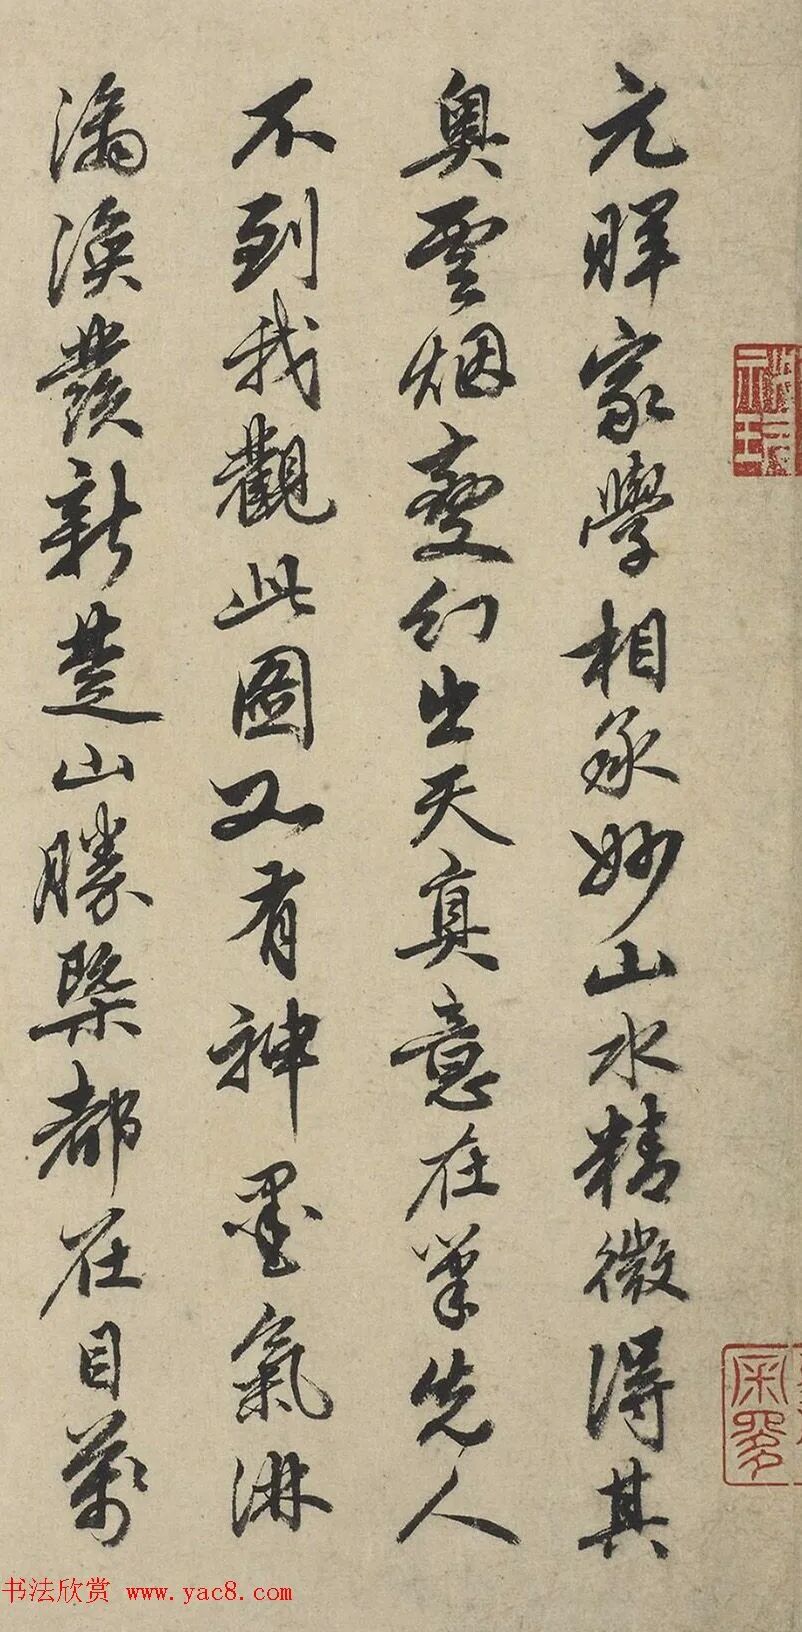 元暉家學相承妙山水精微得其
奧雲烟變幻出天真意在筆先人
不到我觀此圖又有神墨氣淋
漓渙發新楚山勝槩都在目萬
书法欣赏 www.yac8.com